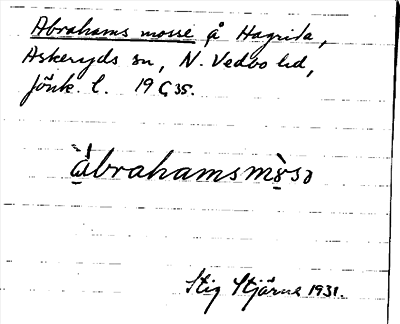 Abrahams mosse på Hagrida,
Askeryds sn, N. Vedbo hd,
Jönk. l. 19 Ç 35.
ὰbrahamsmòsə
Stig Stjärne 1931.